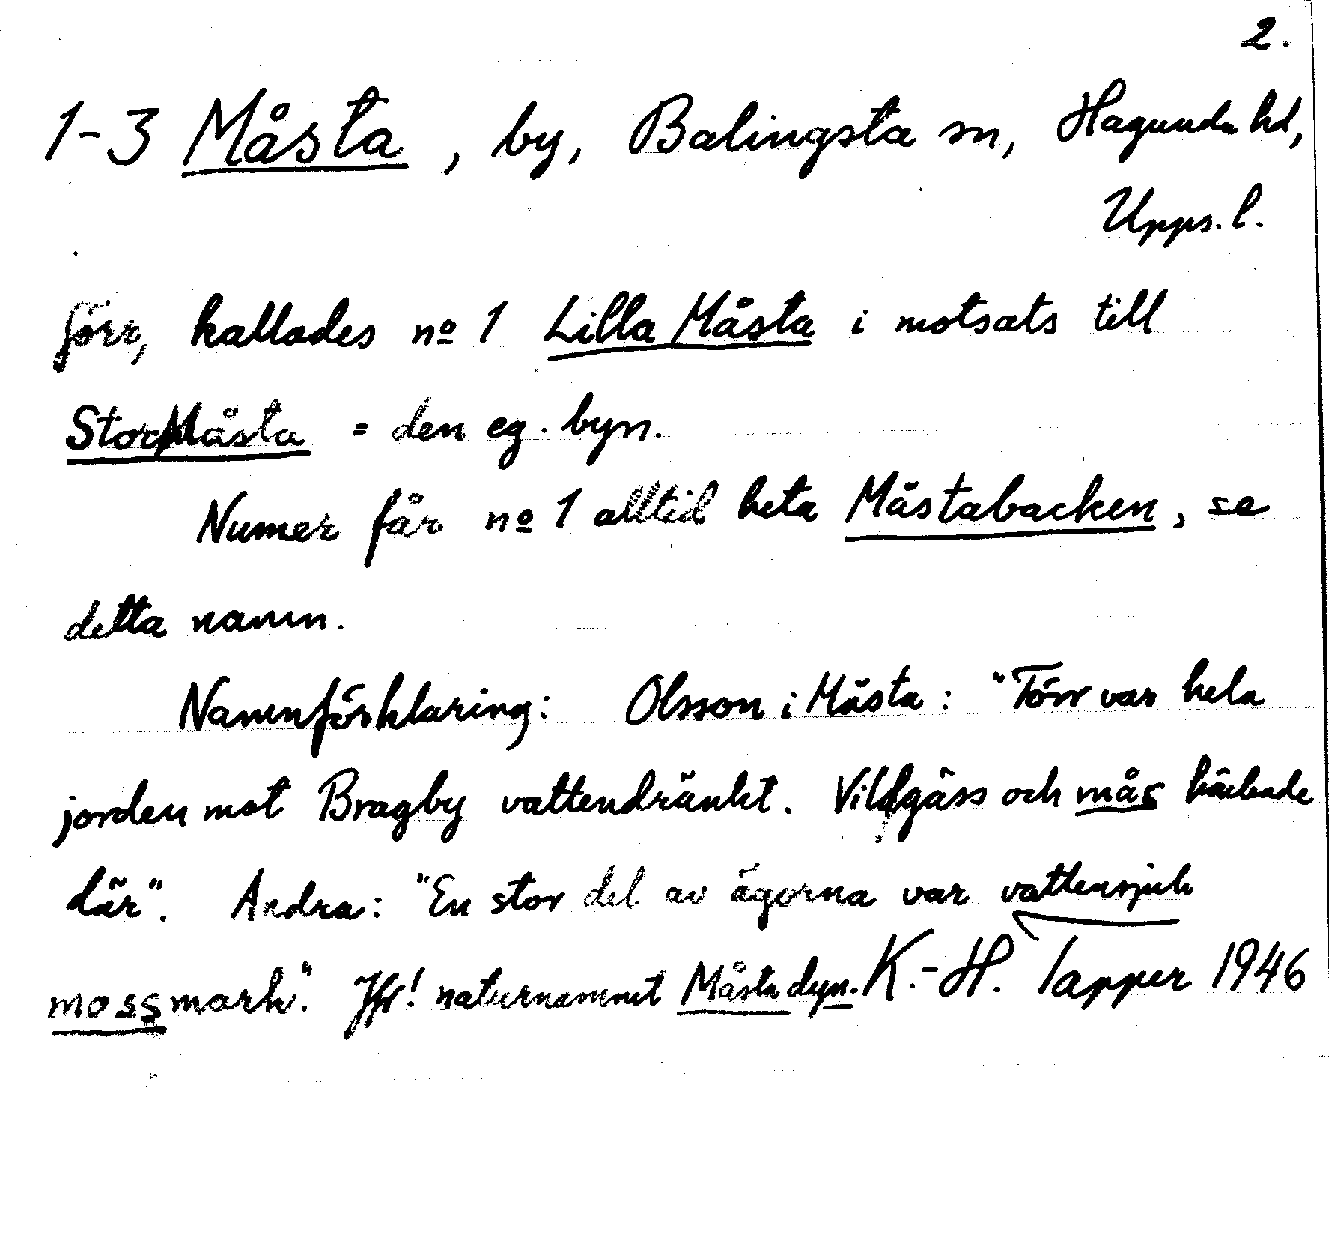 2.
1-3 Måsta, by, Balingsta sn, Hagunda hd,
Upps. l.
förr, kallades no 1 Lilla Måsta i motsats till
Stor Måsta = den eg. byn.
Numer får no 1 alltid heta Måstabacken, se
detta namn.
Namnförklaring: Olsson i Måsta: "Förr var hela
jorden mot Bragby vattendränkt. Vildgäss och mås häckade
där". Andra: "En stor del av ägorna var vattensjuk
mossmark". Jfr! naturnamnet Måstadyn. K.-H. Tapper 1946